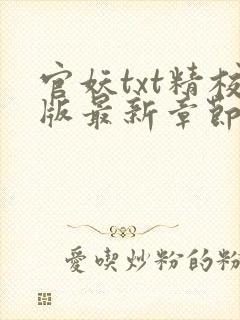 官妖txt精校
版最新章節
愛喫炒粉的粉